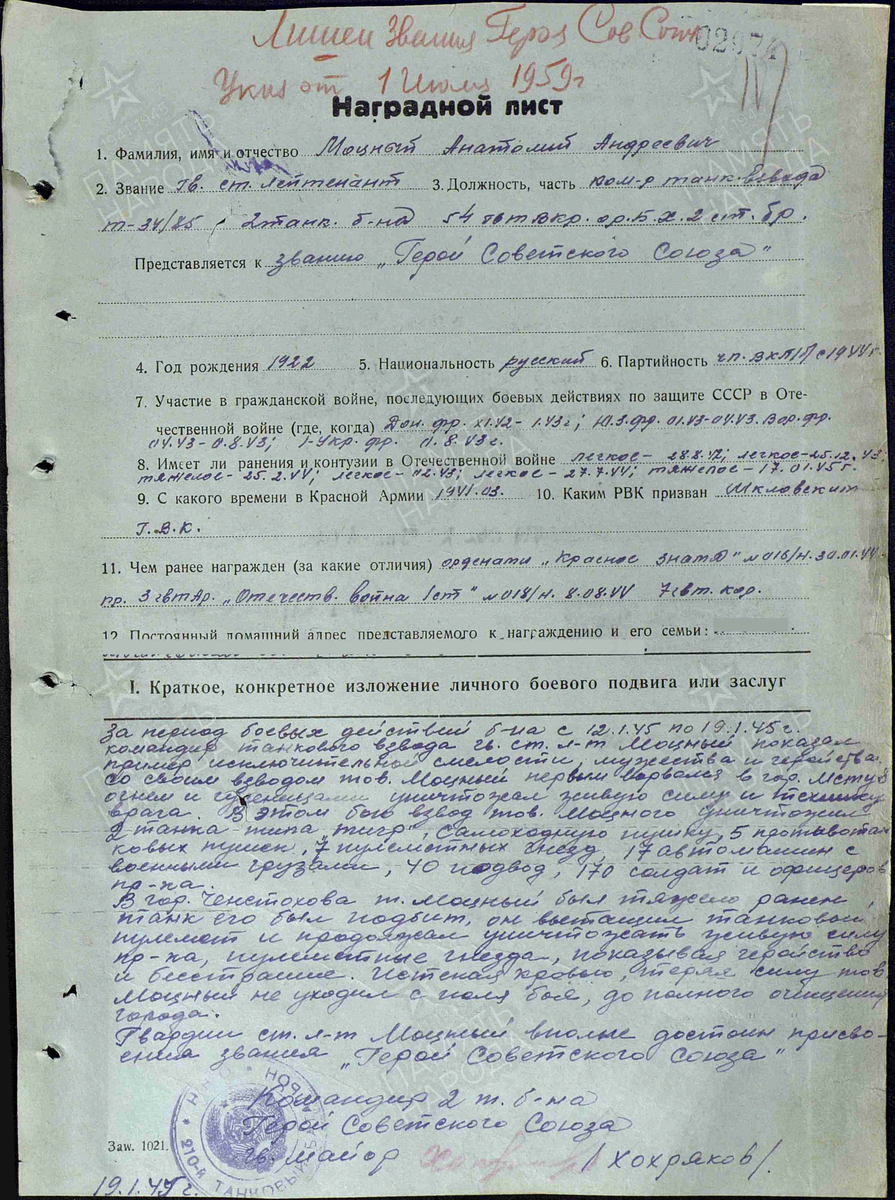 Лишен Звания Героя Сов Союза
02674
Указ от 1 Июля 1959г
Наградной лист
1. Фамилия, имя и отчество Моцный Анатолий Андреевич
2. Звание гв. ст. лейтенант 3. Должность, часть ком-р танк. взвода
т-34/85, 2 танк. б-на 54 гв т Вкр. ор. Б.Х. 2 ст. бр.
Представляется к званию „Герой Советского Союза"
4. Год рождения 1922 5. Национальность русский 6. Партийность чл. ВКП/б/ с 1944 г.
7. Участие в гражданской войне, последующих боевых действиях по защите СССР в Оте-
чественной войне (где, когда) Дон. фр. XI.42- 1.43г; Ю.З.фр. 01.43-04.43. Вор. фр.
04.43- 0.8.43; 1-Укр. фр. 8.43г.
8. Имеет ли ранения и контузии в Отечественной войне легкое- 28.8.42; легкое-25.12.43
тяжелое- 25.2.44; легкое- 02.43; легкое- 27.7.44; тяжелое- 17.01.45г.
9. С какого времени в Красной Армии 1941.03. 10. Каким РВК призван
Г.В.К.
11. Чем ранее награжден (за какие отличия) орденами „Красное знамя" №016/н. 30.01.44
пр. 3 гв т Ар. „Отечеств. война 1 ст" №018/н. 8.08.44 7 гв т. кор.
12. Постоянный домашний адрес представляемого к награждению и его семьи:
I. Краткое, конкретное изложение личного боевого подвига или заслуг
За период боевых действий б-на с 12.1.45 по 19.1.45г.
командир танкового взвода гв. ст. л-т Моцный показал
пример исключительной смелости, мужества и геройства.
Со своим взводом тов. Моцный первым ворвался в гор. Мстув
огнем и гусеницами уничтожал живую силу и технику
врага. В этом бою взвод тов. Моцного уничтожил
2 танка типа „тигр", самоходную пушку, 5 противотан-
ковых пушек, 7 пулеметных гнезд, 17 автомашин с
военными грузами, 40 подвод, 170 солдат и офицеров
пр-ка.
В гор. Ченстохова т. Моцный был тяжело ранен,
танк его был подбит, он вытащил танковый
пулемет и продолжал уничтожать живую силу
пр-ка, пулеметные гнезда, показывая геройство
и бесстрашие. Истекая кровью, теряя силу тов.
Моцный не уходил с поля боя, до полного очищения
города.
Гвардии ст. л-т Моцный вполне достоин присво-
ения звания „Герой Советского Союза"
Командир 2 т. б-на
Герой Советского Союза
гв. майор Хохряков /Хохряков/.
Заw. 1021.
19.1.45 г.